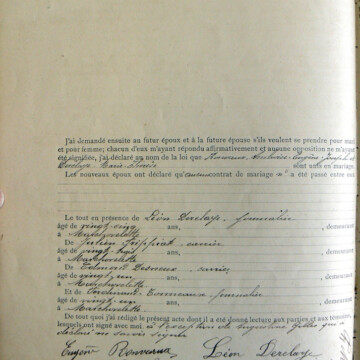 J'ai demandé ensuite au futur époux et à la future épouse s'ils veulent se prendre pour mari
et pour femme; chacun d'eux m'ayant répondu affirmativement et aucune opposition ne m'ayant
été signifiée, j'ai déclaré au nom de la loi que Eugène Joseph et
Marie sont unis en mariage.
Les nouveaux époux ont déclaré qu'aucun contrat de mariage n' a été passé entre eux
Le tout en présence de Léon Derclaye, journalier
âgé de vingt cinq ans, demeurant
à Marchovelette
De Julien carrier
âgé de vingt huit ans, demeurant
à Marchovelette
De carrier
âgé de vingt un ans, demeurant
à Marchovelette
Et de journalier
âgé de vingt un ans, demeurant
à Marchovelette
De tout quoi j'ai rédigé le présent acte dont il a été donné lecture aux parties et aux témoins,
lesquels ont signé avec moi à l'exception de Gilles qui a
déclaré ne savoir signer
Eugène Rouveaux Léon Derclaye